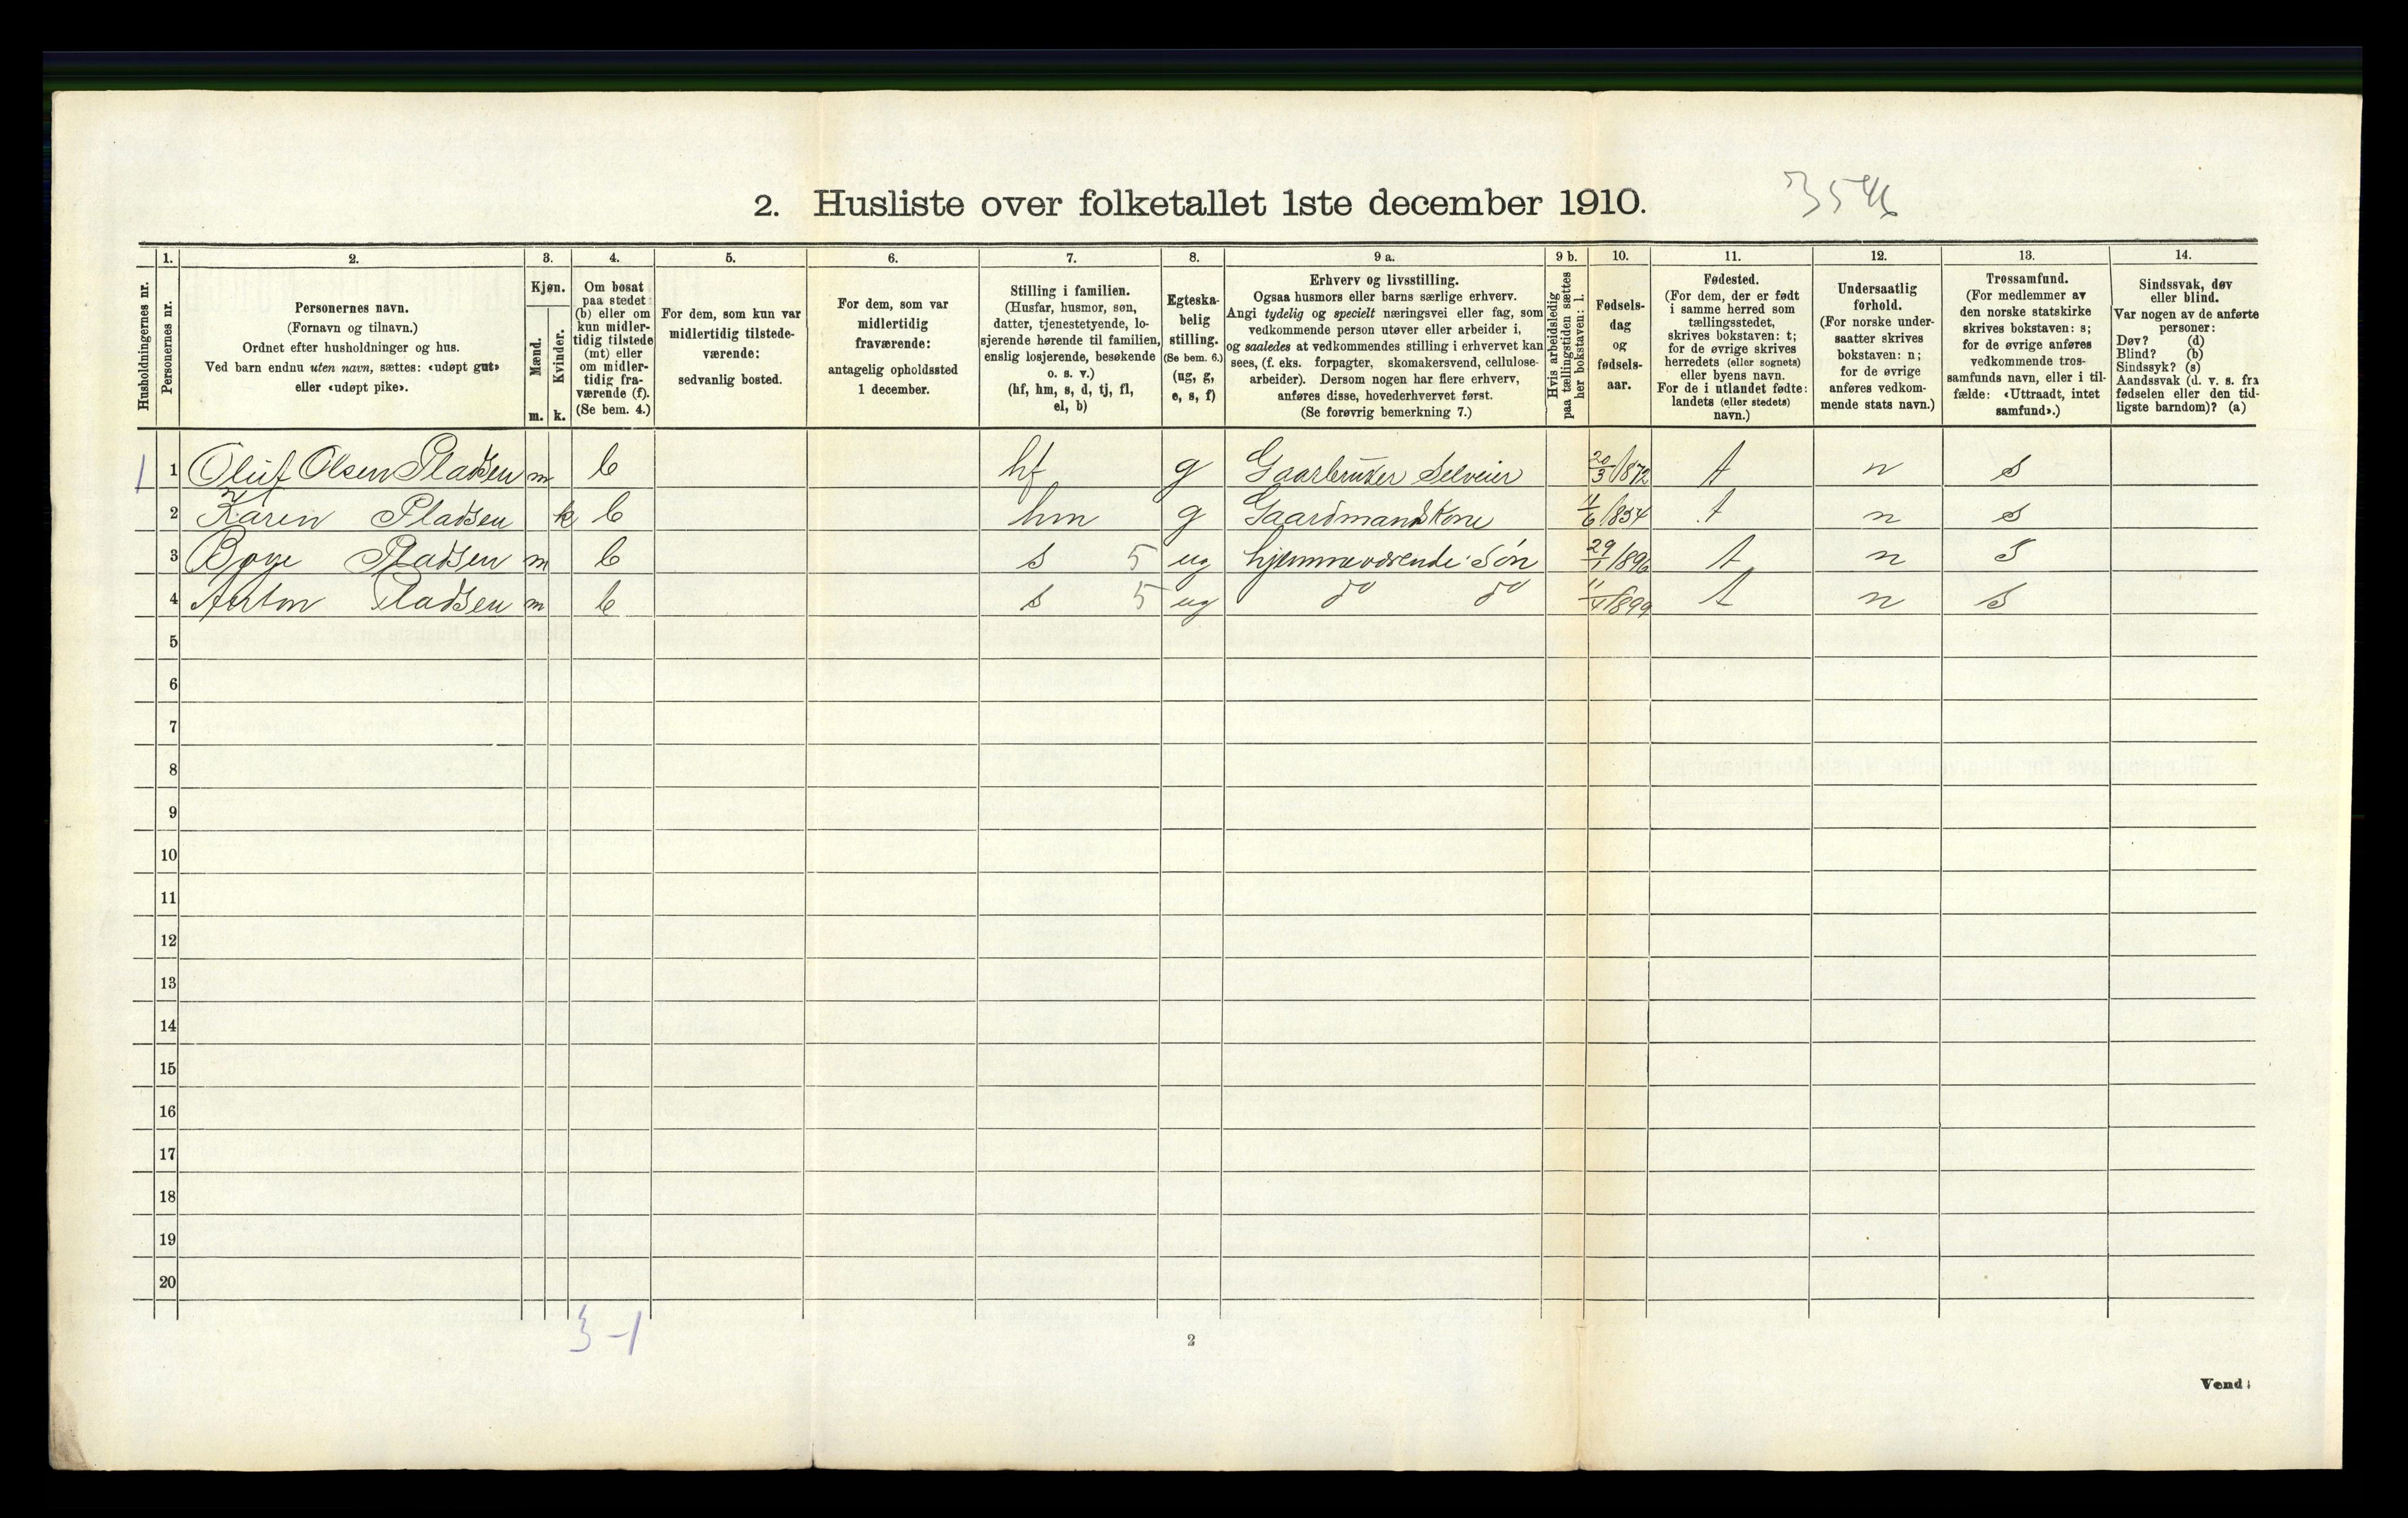 2. Husliste over folketallet 1ste december 1910.
Husholdningernes nr.
1.
Personernes nr.
2.
Personernes navn.
(Fornavn og tilnavn.)
Ordnet efter husholdninger og hus.
Ved barn endnu uten navn, sættes: «udøpt gut»
eller «udøpt pike».
3.
Kjøn.
Mænd.
m.
Kvinder.
k.
4.
Om bosat
paa stedet
(b) eller om
kun midler-
tidig tilstede
(mt) eller
om midler-
tidig fra-
værende (f).
(Se bem. 4.)
5.
For dem, som kun var
midlertidig tilstede-
værende:
sedvanlig bosted.
6.
For dem, som var
midlertidig
fraværende:
antagelig opholdssted
1 december.
7.
Stilling i familien.
(Husfar, husmor, søn,
datter, tjenestetyende, lo-
sjerende hørende til familien,
enslig losjerende, besøkende
o. s. v.)
(hf, hm, s, d, tj, fl,
el, b)
8.
Egteska-
belig
stilling.
(Se bem. 6.)
(ug, g,
e, s, f)
9 a.
Erhverv og livsstilling.
Ogsaa husmors eller barns særlige erhverv.
Angi tydelig og specielt næringsvei eller fag, som
vedkommende person utøver eller arbeider i,
og saaledes at vedkommendes stilling i erhvervet kan
sees, (f. eks. forpagter, skomakersvend, cellulose-
arbeider). Dersom nogen har flere erhverv,
anføres disse, hovederhvervet først.
(Se forøvrig bemerkning 7.)
9 b.
Hvis arbeidsledig
paa tællingstiden sættes
her bokstaven: l.
10.
Fødsels-
dag
og
fødsels-
aar.
11.
Fødested.
(For dem, der er født
i samme herred som
tællingsstedet,
skrives bokstaven: t;
for de øvrige skrives
herredets (eller sognets)
eller byens navn.
For de i utlandet fødte:
landets (eller stedets)
navn.)
12.
Undersaatlig
forhold.
(For norske under-
saatter skrives
bokstaven: n;
for de øvrige
anføres vedkom-
mende stats navn.)
13.
Trossamfund.
(For medlemmer av
den norske statskirke
skrives bokstaven: s;
for de øvrige anføres
vedkommende tros-
samfunds navn, eller i til-
fælde: «Uttraadt, intet
samfund».)
14.
Sindssvak, døv
eller blind.
Var nogen av de anførte
personer:
Døv? (d)
Blind? (b)
Sindssyk? (s)
Aandssvak (d. v. s. fra
fødselen eller den tid-
ligste barndom)? (a)
1 1 Oluf Olsen Pladsen m b hf g Gaarbruker Selveier 20/3 1872 t n s
2 Karen Pladsen k b hm g Gaardmandskone 6/1854 t n s
3 Pladsen m b s 5 ug hjemmeværende Søn 29/1 1896 t n s
4 Anton Pladsen m b s 5 ug do do 11/4 1899 t n s
5
6
7
8
9
10
11
12
13
14
15
16
17
18
19
20
3-1
2
Vend!